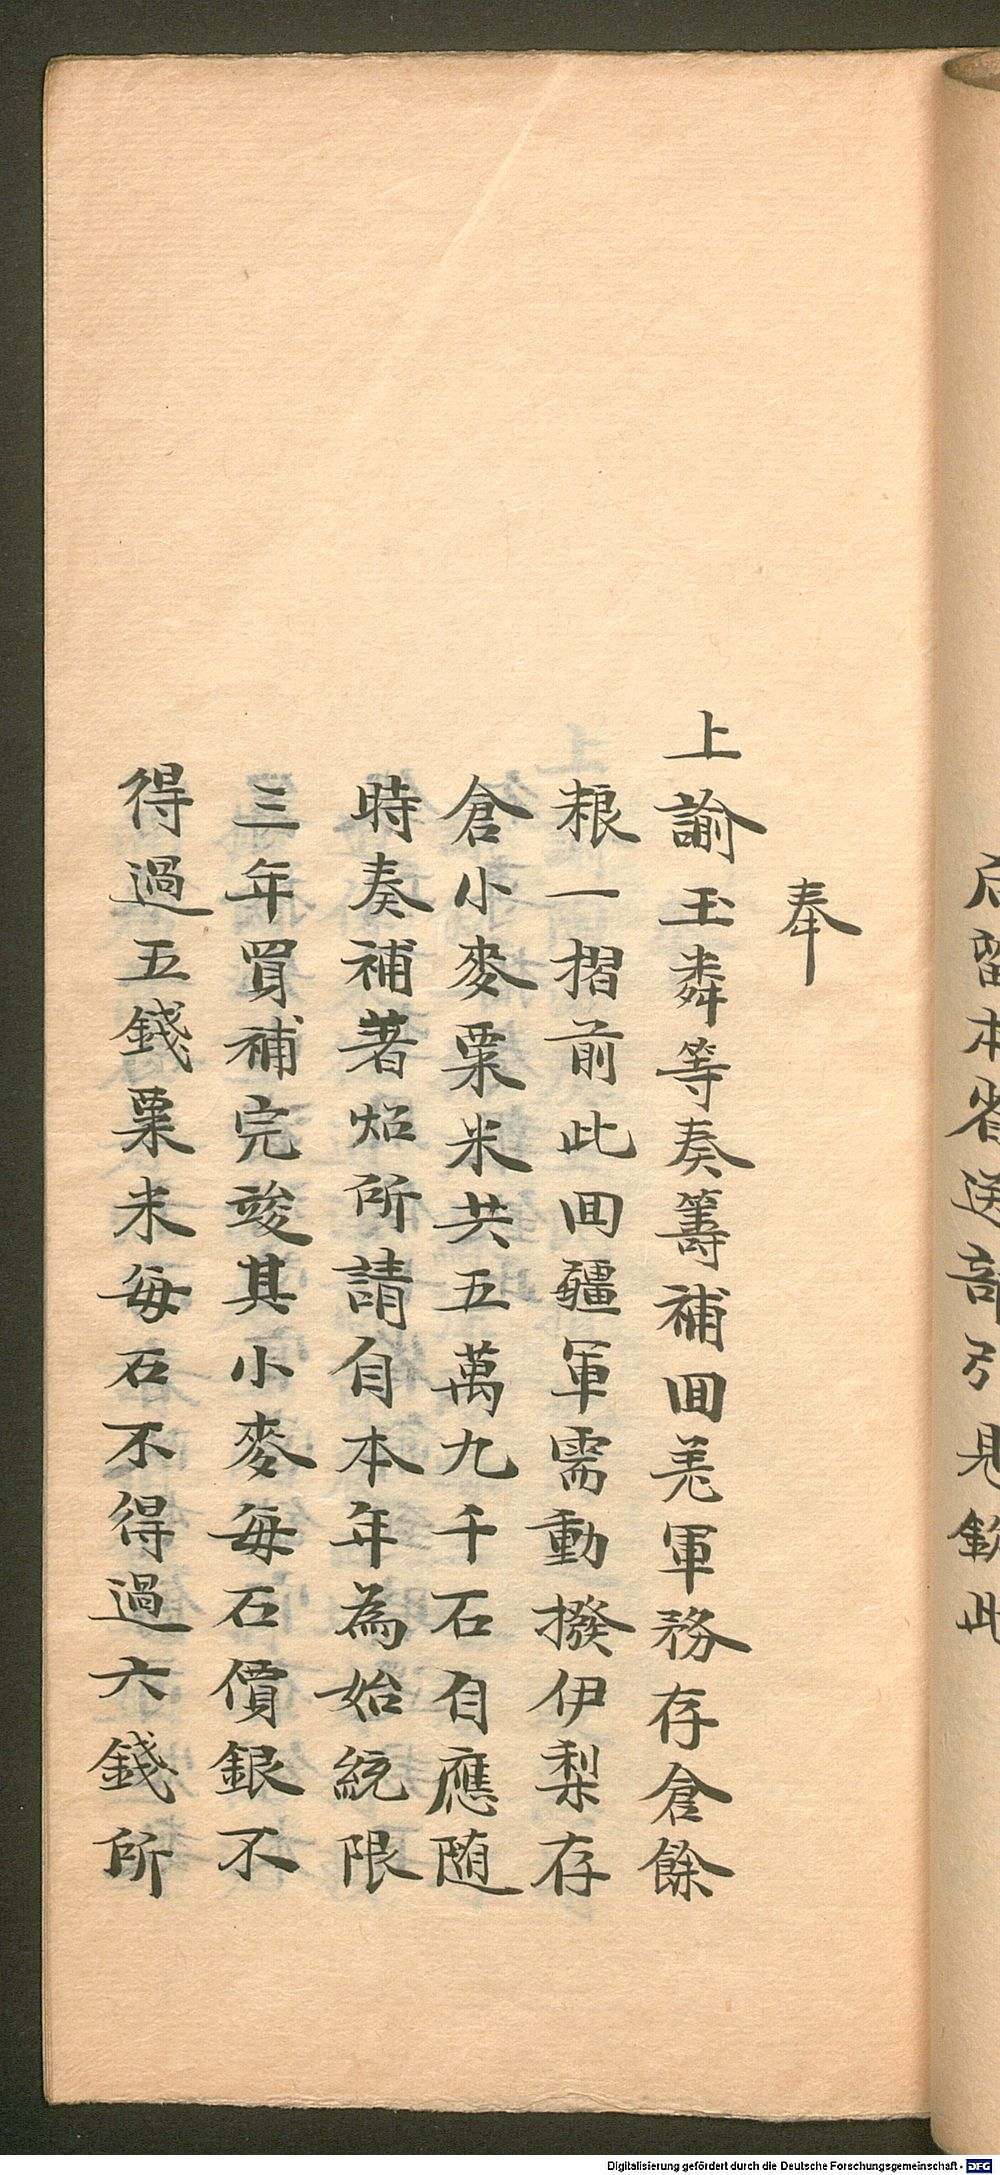 后留本省送部引見欽此
奉
上諭玉麟等奏籌補囬羌軍務存倉餘
粮一摺前此囬疆軍需動撥伊梨存
倉小麥粟米共五萬九千石自應随
時奏補著炤所請自本年為始統限
三年買補完竣其小麥每石價銀不
得過五錢粟米每石不得過六錢所
Digitalisierung gefördert durch die Deutsche Forschungsgemeinschaft - DFG